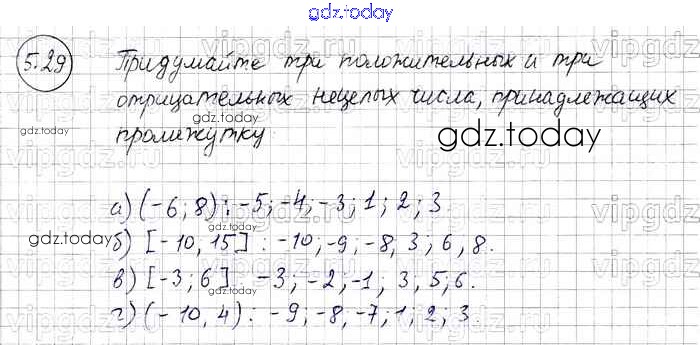 gdz.today
5.29
Придумайте три положительных и три
отрицательных нецелых числа, принадлежащих
промежутку
gdz.today
а) (-6; 8) : -5; -4; -3; 1; 2; 3.
gdz.today
б) [-10, 15] : -10; -9; -8, 3; 6, 8.
в) [-3; 6] : -3; -2; -1; 3, 5; 6.
г) (-10, 4) : -9; -8, -7; 1; 2; 3.